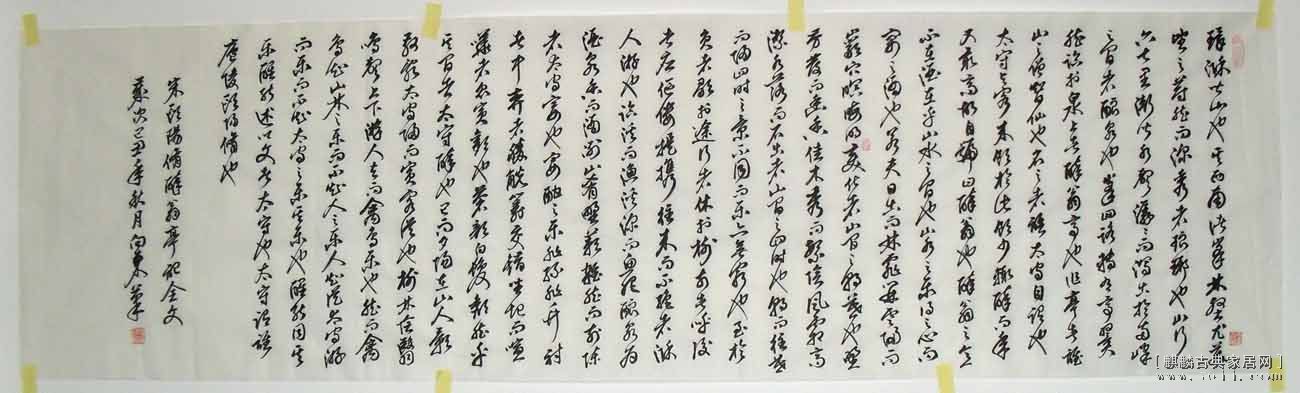 環滁皆山也其西南諸峯林壑尤美
望之蔚然而深秀者瑯琊也山行
六七里漸聞水聲潺潺而瀉出於兩峰
之間者釀泉也峯回路轉有亭翼
然臨於泉上者醉翁亭也作亭者誰
山之僧智仙也名之者誰太守自謂也
太守與客來飲於此飲少輒醉而年
又最高故自號曰醉翁也醉翁之意
不在酒在乎山水之間也山水之樂得之心而
寓之酒也若夫日出而林霏開雲歸而
巖穴暝晦明變化者山間之朝暮也野
芳發而幽香佳木秀而繁陰風霜高
潔水落而石出者山間之四時也朝而往暮
而歸四時之景不同而樂亦無窮也至於
負者歌於途行者休於樹前者呼後
者應傴僂提攜往來而不絕者滁
人遊也臨溪而漁溪深而魚肥釀泉為
酒泉香而酒洌山肴野蔌雜然而前陳
者太守宴也宴酣之樂非絲非竹射
者中弈者勝觥籌交錯坐起而諠
譁者眾賓歡也蒼顏白髮頹然乎
其間者太守醉也已而夕陽在山人影
散亂太守歸而賓客從也樹林陰翳
鳴聲上下遊人去而禽鳥樂也然而禽
鳥知山林之樂而不知人之樂人知從太守遊
而樂而不知太守之樂其樂也醉能同其
樂醒能述以文者太守也太守謂誰
廬陵歐陽脩也
宋歐陽脩醉翁亭記全文
歲次己丑年秋月向東
[麒麟古典家居网]